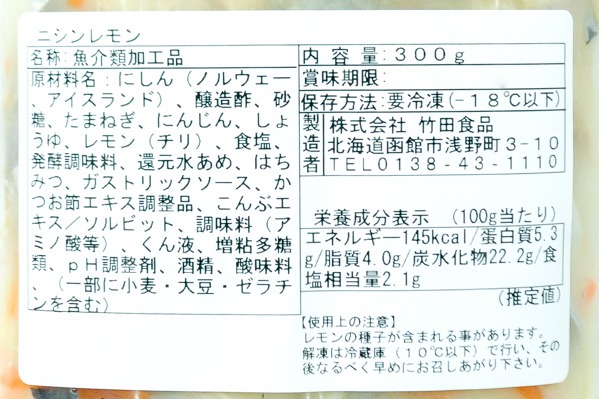 ニシンレモン
名称:魚介類加工品
原材料名:にしん(ノルウェー
、アイスランド)、醸造酢、砂
糖、たまねぎ、にんじん、しょ
うゆ、レモン(チリ)、食塩、
発酵調味料、還元水あめ、はち
みつ、ガストリックソース、か
つお節エキス調整品、こんぶエ
キス/ソルビット、調味料(ア
ミノ酸等)、くん液、増粘多糖
類、pH調整剤、酒精、酸味料
、(一部に小麦・大豆・ゼラチ
ンを含む)
内容量:300g
賞味期限:
保存方法:要冷凍(-18℃以下)
製造者
株式会社 竹田食品
北海道函館市浅野町3-10
TEL0138-43-1110
栄養成分表示 (100g当たり)
エネルギー145kcal/蛋白質5.3
g/脂質4.0g/炭水化物22.2g/食
塩相当量2.1g
(推定値)
【使用上の注意】
レモンの種子が含まれる事があります。
解凍は冷蔵庫(10℃以下)で行い、その
後なるべく早めにお召しあがり下さい。